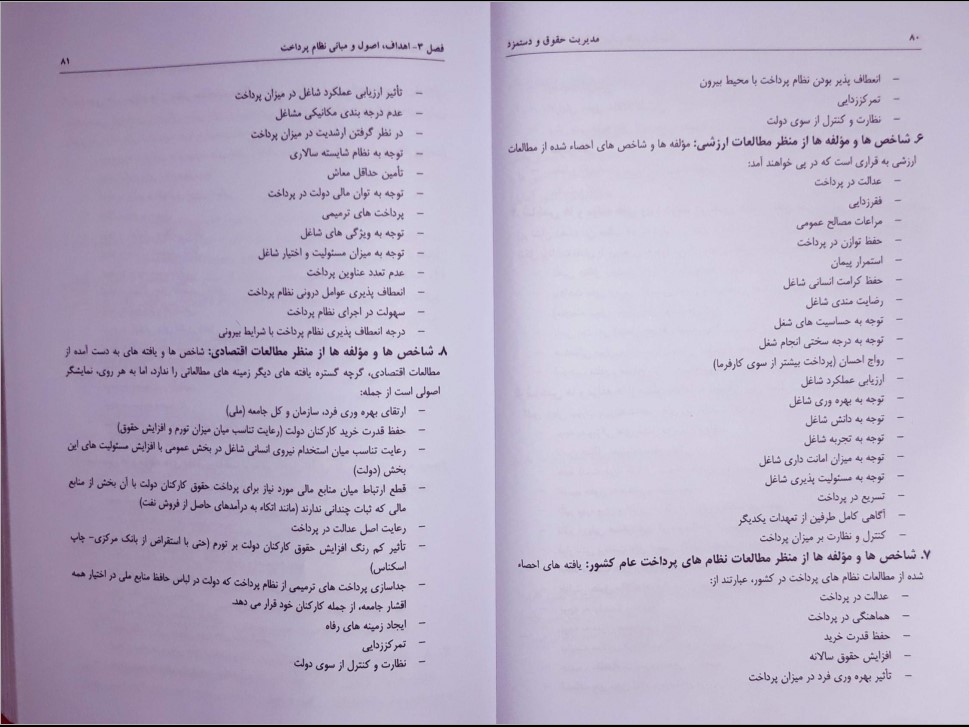 ۸۰
مدیریت حقوق و دستمزد
– انعطاف پذیر بودن نظام پرداخت با محیط بیرون
– تمرکززدایی
– نظارت و کنترل از سوی دولت
۶. شاخص ها و مؤلفه ها از منظر مطالعات ارزشی: مؤلفه ها و شاخص های احصاء شده از مطالعات
ارزشی به قراری است که در پی خواهند آمد:
– عدالت در پرداخت
– فقرزدایی
– مراعات مصالح عمومی
– حفظ توازن در پرداخت
– استمرار پیمان
– حفظ کرامت انسانی شاغل
– رضایت مندی شاغل
– توجه به حساسیت های شغل
– توجه به درجه سختی انجام شغل
– رواج احسان (پرداخت بیشتر از سوی کارفرما)
– ارزیابی عملکرد شاغل
– توجه به بهره وری شاغل
– توجه به دانش شاغل
– توجه به تجربه شاغل
– توجه به میزان امانت داری شاغل
– توجه به مسئولیت پذیری شاغل
– تسریع در پرداخت
– آگاهی کامل طرفین از تعهدات یکدیگر
– کنترل و نظارت بر میزان پرداخت
۷. شاخص ها و مؤلفه ها از منظر مطالعات نظام های پرداخت عام کشور: یافته های احصاء
شده از مطالعات نظام های پرداخت در کشور، عبارتند از:
– عدالت در پرداخت
– هماهنگی در پرداخت
– حفظ قدرت خرید
– افزایش حقوق سالانه
– تأثیر بهره وری فرد در میزان پرداخت
فصل ۳- اهداف، اصول و مبانی نظام پرداخت
۸۱
– تأثیر ارزیابی عملکرد شاغل در میزان پرداخت
– عدم درجه بندی مکانیکی مشاغل
– در نظر گرفتن ارشدیت در میزان پرداخت
– توجه به نظام شایسته سالاری
– تأمین حداقل معاش
– توجه به توان مالی دولت در پرداخت
– پرداخت های ترمیمی
– توجه به ویژگی های شاغل
– توجه به میزان مسئولیت و اختیار شاغل
– عدم تعدد عناوین پرداخت
– انعطاف پذیری عوامل درونی نظام پرداخت
– سهولت در اجرای نظام پرداخت
– درجه انعطاف پذیری نظام پرداخت با شرایط بیرونی
۸. شاخص ها و مؤلفه ها از منظر مطالعات اقتصادی: شاخص ها و یافته های به دست آمده از
مطالعات اقتصادی، گرچه گستره یافته های دیگر زمینه های مطالعاتی را ندارد، اما به هر روی، نمایشگر
اصولی است از جمله:
– ارتقای بهره وری فرد، سازمان و کل جامعه (ملی)
– حفظ قدرت خرید کارکنان دولت (رعایت تناسب میان میزان تورم و افزایش حقوق)
– رعایت تناسب میان استخدام نیروی انسانی شاغل در بخش عمومی با افزایش مسئولیت های این
بخش (دولت)
– قطع ارتباط میان منابع مالی مورد نیاز برای پرداخت حقوق کارکنان دولت با آن بخش از منابع
مالی که ثبات چندانی ندارند (مانند اتکاء به درآمدهای حاصل از فروش نفت)
– رعایت اصل عدالت در پرداخت
– تأثیر کم رنگ افزایش حقوق کارکنان دولت بر تورم (حتی با استقراض از بانک مرکزی- چاپ
اسکناس)
– جداسازی پرداخت های ترمیمی از نظام پرداخت که دولت در لباس حافظ منابع ملی در اختیار همه
اقشار جامعه، از جمله کارکنان خود قرار می دهد.
– ایجاد زمینه های رفاه
– تمرکززدایی
– نظارت و کنترل از سوی دولت